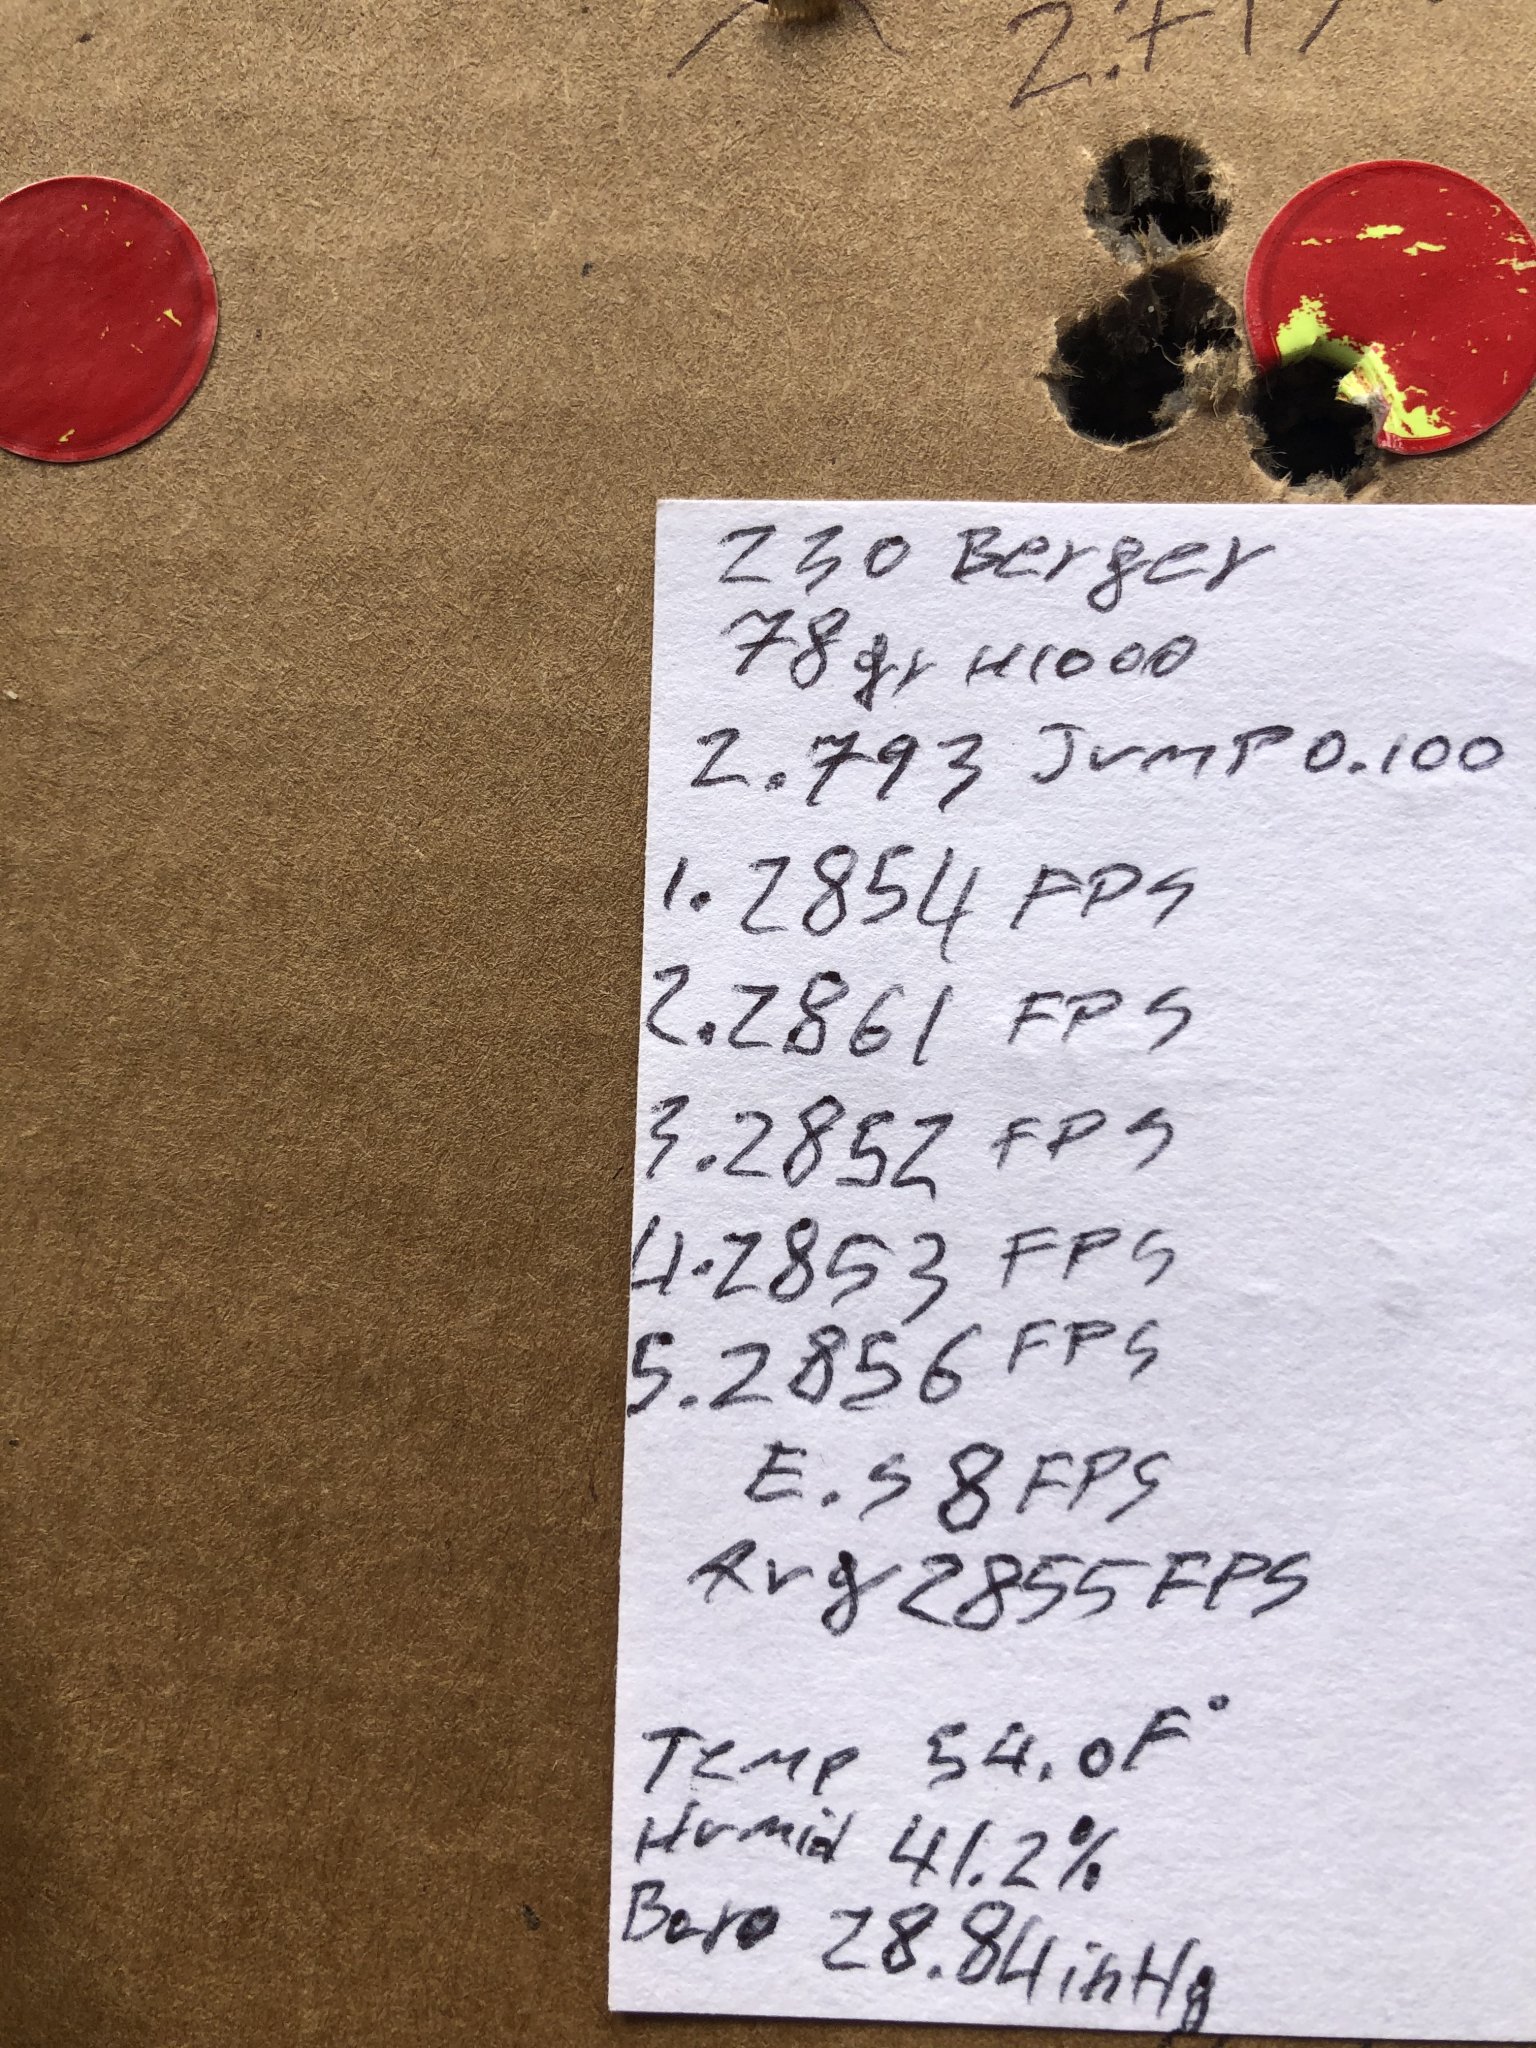 230 Berger
78gr H1000
2.793 Jump 0.100
1. 2854 FPS
2. 2861 FPS
3. 2852 FPS
4. 2853 FPS
5. 2856 FPS
E.S 8 FPS
Avg 2855 FPS
Temp 54.0F°
Humid 41.2%
Baro 28.84inHg